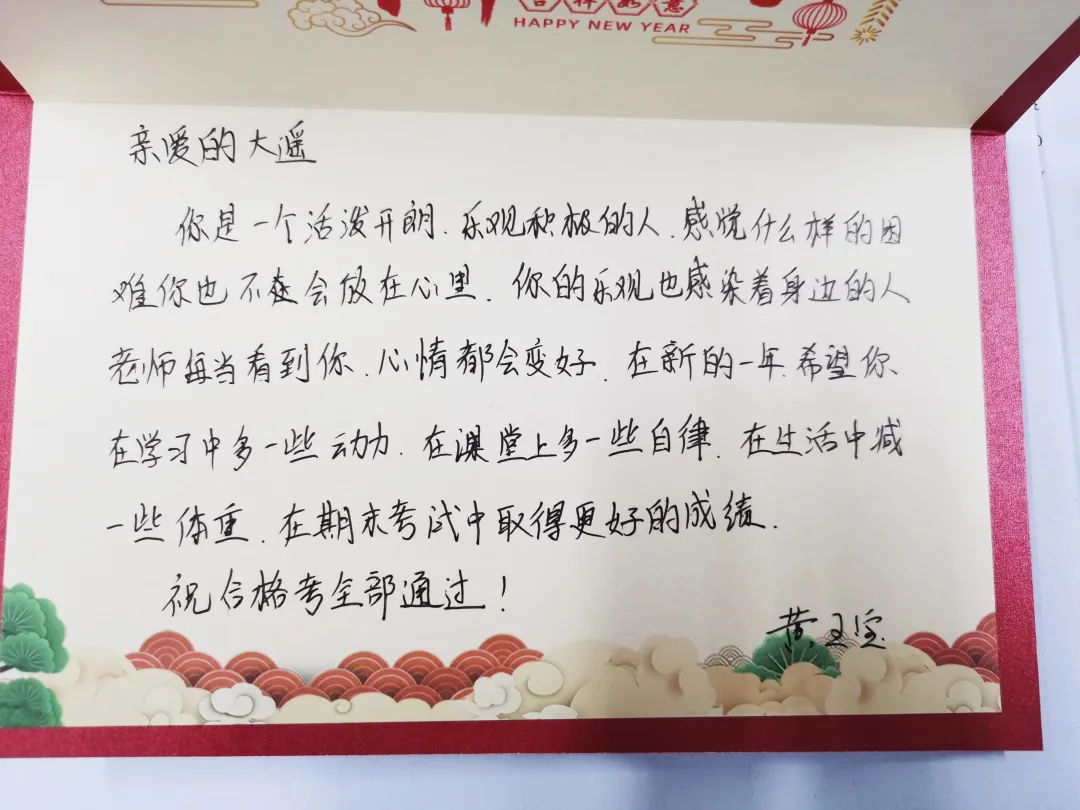 吉祥如意
HAPPY NEW YEAR
亲爱的大遥
你是一个活泼开朗、乐观积极的人,感觉什么样的困
难你也不会放在心里,你的乐观也感染着身边的人
老师每当看到你,心情都会变好,在新的一年,希望你
在学习中多一些动力,在课堂上多一些自律,在生活中减
一些体重,在期末考试中取得更好的成绩.
祝合格考全部通过!
黄玉莹